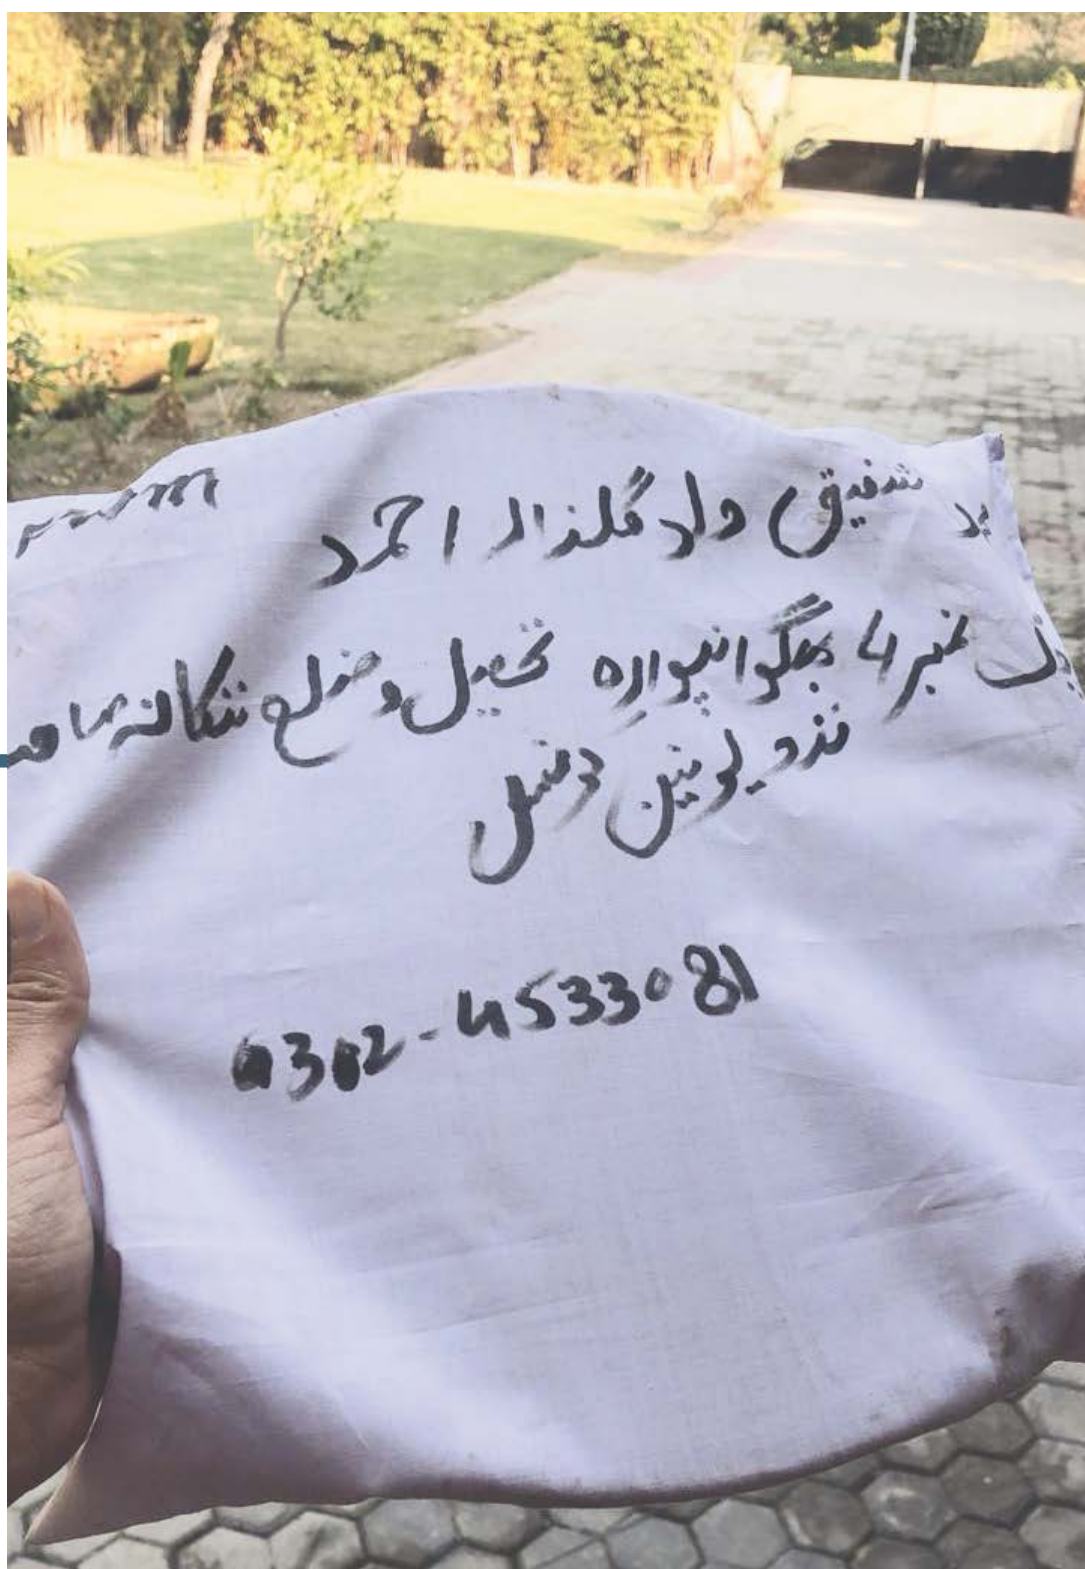 شفیق ولد گلزار احمد
نمبر 4 بھگوانپورہ تحصیل و ضلع ننکانہ صاحب
نزد یونین کونسل
0302-4533081